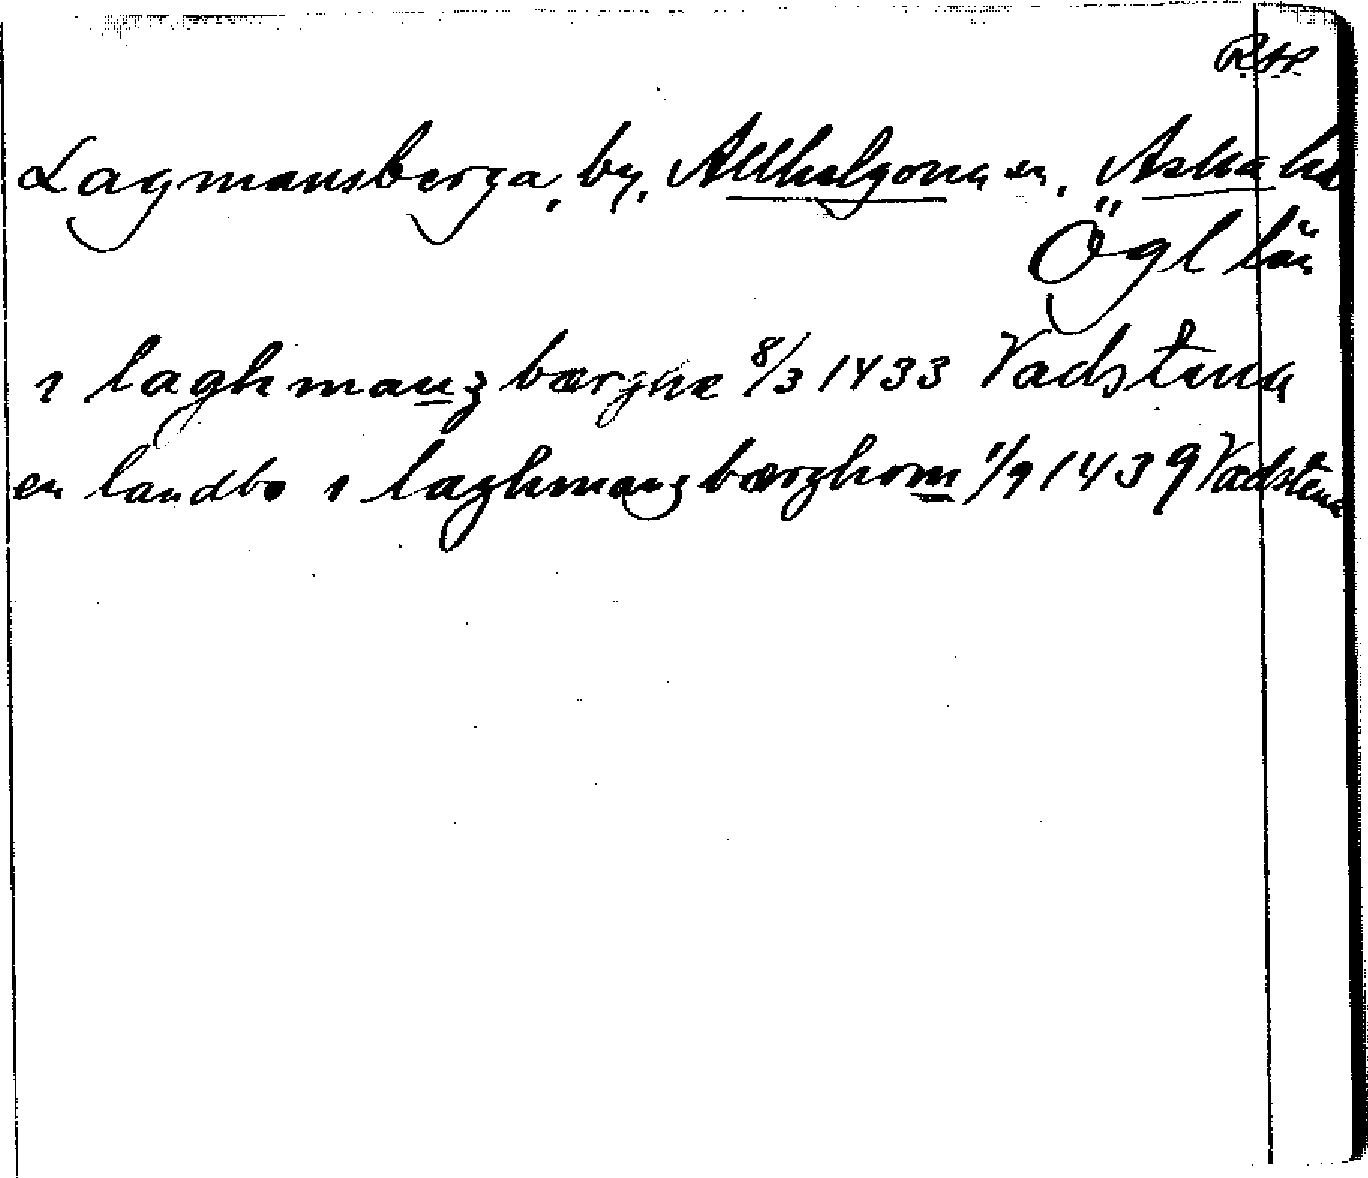 RAP.
Lagmansberga, by, Allhelgona sn, Aska hd
Ögl län
i laghmanz bærghæ 8/3 1433 Vadstena
en landbo i laghmanzbærghom 1/9 1439 Vadstena